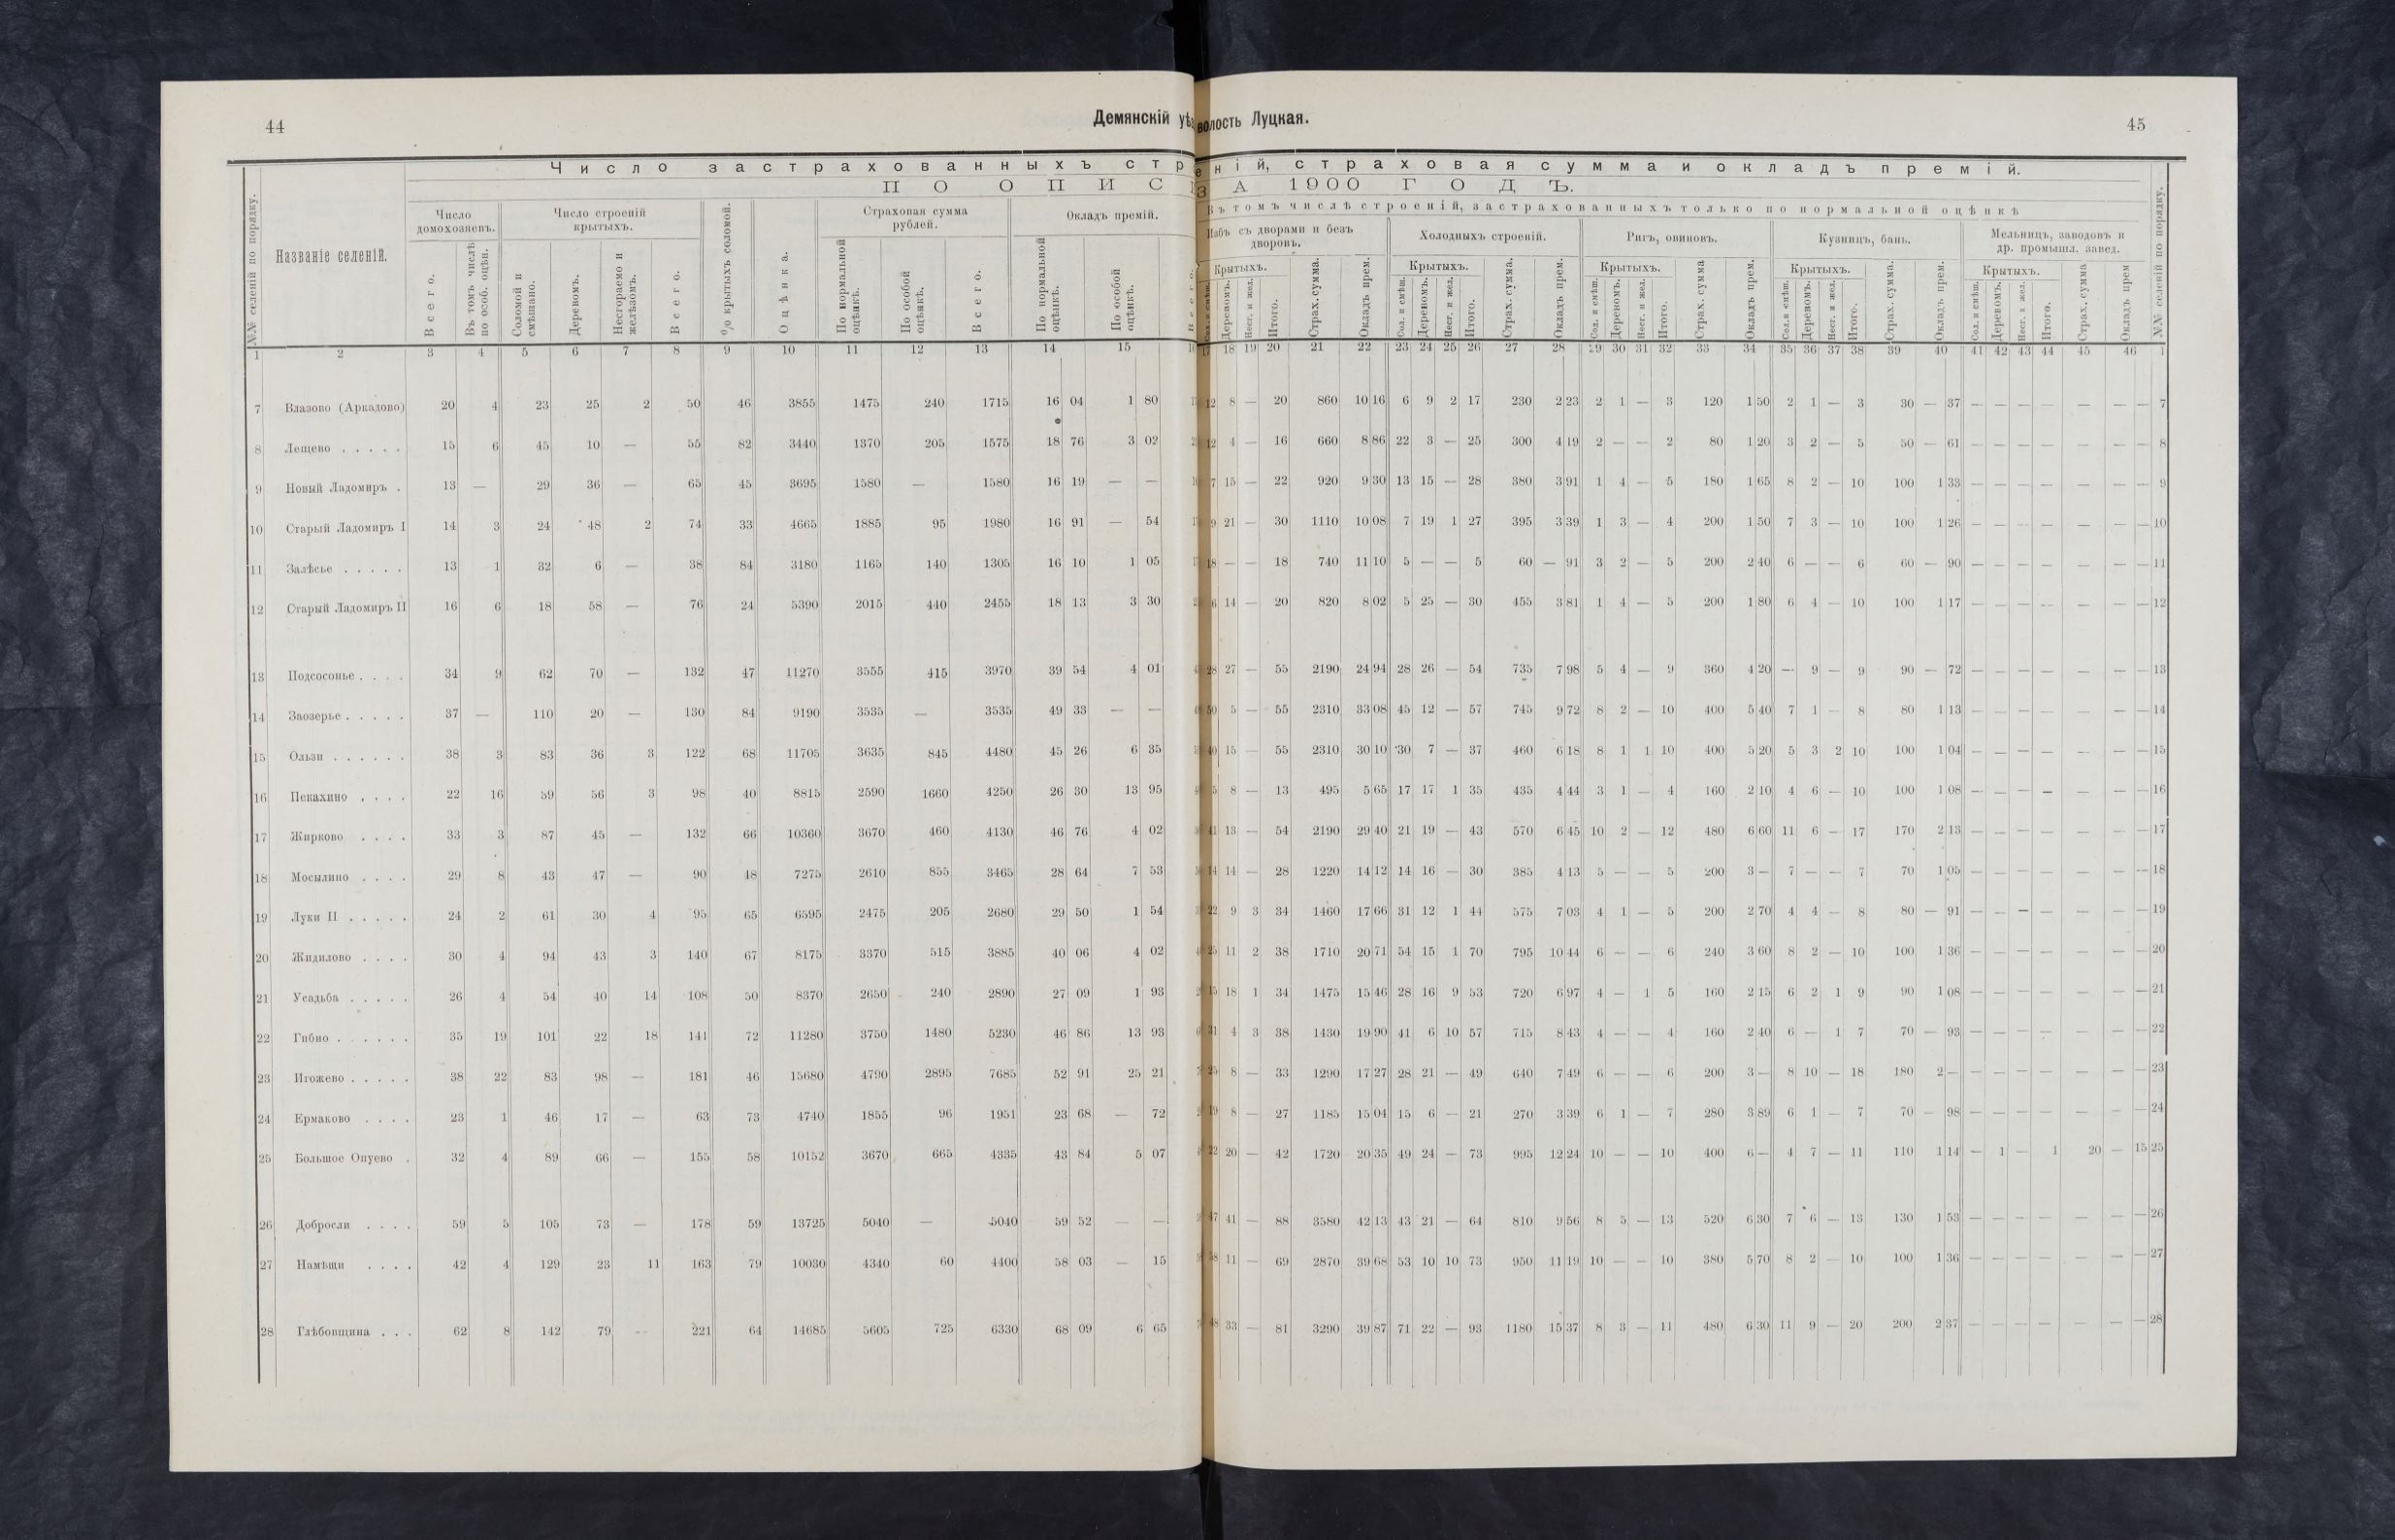 44
Демянскій уѣ
волость Луцкая.
45
Число застрахованныхъ стр
еній, страховая сумма и окладъ премій.
ПО ОПИС
ЗА 1900 ГОДЪ.
Въ томъ числѣ строеній, застрахованныхъ только по нормальной оцѣнкѣ
№№ селеній по порядку.
Названіе селеній.
Число домохозяевъ.
Всего.
Въ томъ числѣ по особ. оцѣн.
Число строеній крытыхъ.
Соломой и смѣшано.
Деревомъ.
Несгораемо и желѣзомъ.
Всего.
% крытыхъ соломой.
Оцѣнка.
Страховая сумма рублей.
По нормальной оцѣнкѣ.
По особой оцѣнкѣ.
Всего.
Окладъ премій.
По нормальной оцѣнкѣ.
По особой оцѣнкѣ.
Избъ съ дворами и безъ дворовъ.
Крытыхъ.
Деревомъ.
Несг. и жел.
Итого.
Страх. сумма.
Окладъ прем.
Холодныхъ строеній.
Крытыхъ.
Сол. и смѣш.
Деревомъ.
Несг. и жел.
Итого.
Страх. сумма.
Окладъ прем.
Ригъ, овиновъ.
Крытыхъ.
Сол. и смѣш.
Деревомъ.
Несг. и жел.
Итого.
Страх. сумма
Окладъ прем.
Кузницъ, бань.
Крытыхъ.
Сол. и смѣш.
Деревомъ.
Несг. и жел.
Итого.
Страх. сумма.
Окладъ прем.
Мельницъ, заводовъ и др. промышл. завед.
Крытыхъ.
Сол. и смѣш.
Деревомъ.
Несг. и жел.
Итого.
Страх. сумма
Окладъ прем
№№ селеній по порядку.
1 2 3 4 5 6 7 8 9 10 11 12 13 14 15 18 19 20 21 22 23 24 25 26 27 28 29 30 31 32 33 34 35 36 37 38 39 40 41 42 43 44 45 46 1
7 Влазово (Аркадово) 20 4 23 25 2 50 46 3855 1475 240 1715 16 04 1 80 12 8 — 20 860 10 16 6 9 2 17 230 2 23 2 1 — 3 120 1 50 2 1 — 3 30 — 37 — — — — — — — 7
8 Лещево . . . . . 15 6 45 10 — 55 82 3440 1370 205 1575 18 76 3 02 12 4 — 16 660 8 86 22 3 — 25 300 4 19 2 — — 2 80 1 20 3 2 — 5 50 — 61 — — — — — — — 8
9 Новый Ладомиръ . 13 — 29 36 — 65 45 3695 1580 — 1580 16 19 — — 7 15 — 22 920 9 30 13 15 — 28 380 3 91 1 4 — 5 180 1 65 8 2 — 10 100 1 33 — — — — — — — 9
10 Старый Ладомиръ I 14 3 24 48 2 74 33 4665 1885 95 1980 16 91 — 54 9 21 — 30 1110 10 08 7 19 1 27 395 3 39 1 3 — 4 200 1 50 7 3 — 10 100 1 26 — — — — — — — 10
11 Залѣсье . . . . . 13 1 32 6 — 38 84 3180 1165 140 1305 16 10 1 05 18 — — 18 740 11 10 5 — — 5 60 — 91 3 2 — 5 200 2 40 6 — — 6 60 — 90 — — — — — — — 11
12 Старый Ладомиръ II 16 6 18 58 — 76 24 5390 2015 440 2455 18 13 3 30 6 14 — 20 820 8 02 5 25 — 30 455 3 81 1 4 — 5 200 1 80 6 4 — 10 100 1 17 — — — — — — — 12
13 Подсосонье . . . . 34 9 62 70 — 132 47 11270 3555 415 3970 39 54 4 01 28 27 — 55 2190 24 94 28 26 — 54 735 7 98 5 4 — 9 360 4 20 — 9 — 9 90 — 72 — — — — — — — 13
14 Заозерье . . . . . 37 — 110 20 — 130 84 9190 3535 — 3535 49 33 — — 50 5 — 55 2310 33 08 45 12 — 57 745 9 72 8 2 — 10 400 5 40 7 1 — 8 80 1 13 — — — — — — — 14
15 Ользи . . . . . . 38 3 83 36 3 122 68 11705 3635 845 4480 45 26 6 35 40 15 — 55 2310 30 10 30 7 — 37 460 6 18 8 1 1 10 400 5 20 5 3 2 10 100 1 04 — — — — — — — 15
16 Пекахино . . . . 22 16 39 56 3 98 40 8815 2590 1660 4250 26 30 13 95 5 8 — 13 495 5 65 17 17 1 35 435 4 44 3 1 — 4 160 2 10 4 6 — 10 100 1 08 — — — — — — — 16
17 Жирково . . . . 33 3 87 45 — 132 66 10360 3670 460 4130 46 76 4 02 41 13 — 54 2190 29 40 21 19 — 43 570 6 45 10 2 — 12 480 6 60 11 6 — 17 170 2 13 — — — — — — — 17
18 Мосылино . . . . 29 8 43 47 — 90 48 7275 2610 855 3465 28 64 7 53 14 14 — 28 1220 14 12 14 16 — 30 385 4 13 5 — — 5 200 3 — 7 — — 7 70 1 05 — — — — — — — 18
19 Луки II . . . . . 24 2 61 30 4 95 65 6595 2475 205 2680 29 50 1 54 22 9 3 34 1460 17 66 31 12 1 44 575 7 03 4 1 — 5 200 2 70 4 4 — 8 80 — 91 — — — — — — — 19
20 Жидилово . . . . 30 4 94 43 3 140 67 8175 3370 515 3885 40 06 4 02 25 11 2 38 1710 20 71 54 15 1 70 795 10 44 6 — — 6 240 3 60 8 2 — 10 100 1 36 — — — — — — — 20
21 Усадьба . . . . . 26 4 54 40 14 108 50 8370 2650 240 2890 27 09 1 93 15 18 1 34 1475 15 46 28 16 9 53 720 6 97 4 — 1 5 160 2 15 6 2 1 9 90 1 08 — — — — — — — 21
22 Гибно . . . . . . 35 19 101 22 18 141 72 11280 3750 1480 5230 46 86 13 93 31 4 3 38 1430 19 90 41 6 10 57 715 8 43 4 — — 4 160 2 40 6 — 1 7 70 — 93 — — — — — — — 22
23 Игожево . . . . . 38 22 83 98 — 181 46 15680 4790 2895 7685 52 91 25 21 25 8 — 33 1290 17 27 28 21 — 49 640 7 49 6 — — 6 200 3 — 8 10 — 18 180 2 — — — — — — — — 23
24 Ермаково . . . . 23 1 46 17 — 63 73 4740 1855 96 1951 23 68 — 72 19 8 — 27 1185 15 04 15 6 — 21 270 3 39 6 1 — 7 280 3 89 6 1 — 7 70 — 98 — — — — — — — 24
25 Большое Опуево . 32 4 89 66 — 155 58 10152 3670 665 4335 43 84 5 07 22 20 — 42 1720 20 35 49 24 — 73 995 12 24 10 — — 10 400 6 — 4 7 — 11 110 1 14 — 1 — 1 20 — 15 25
26 Добросли . . . . 59 5 105 73 — 178 59 13725 5040 — 5040 59 52 — — 47 41 — 88 3580 42 13 43 21 — 64 810 9 56 8 5 — 13 520 6 30 7 6 — 13 130 1 53 — — — — — — — 26
27 Намѣщи . . . . 42 4 129 23 11 163 79 10030 4340 60 4400 58 03 — 15 58 11 — 69 2870 39 68 53 10 10 73 950 11 19 10 — — 10 380 5 70 8 2 — 10 100 1 36 — — — — — — — 27
28 Глѣбовщина . . . 62 8 142 79 — 221 64 14685 5605 725 6330 68 09 6 65 48 33 — 81 3290 39 87 71 22 — 93 1180 15 37 8 3 — 11 480 6 30 11 9 — 20 200 2 37 — — — — — — — 28